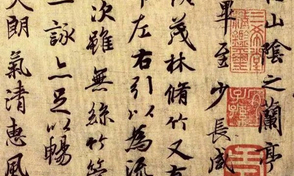 山陰之蘭亭
畢至少長咸
茂林脩竹又有
左右引以為流
次雖無絲竹管
一詠亦足以暢
朗氣清惠風